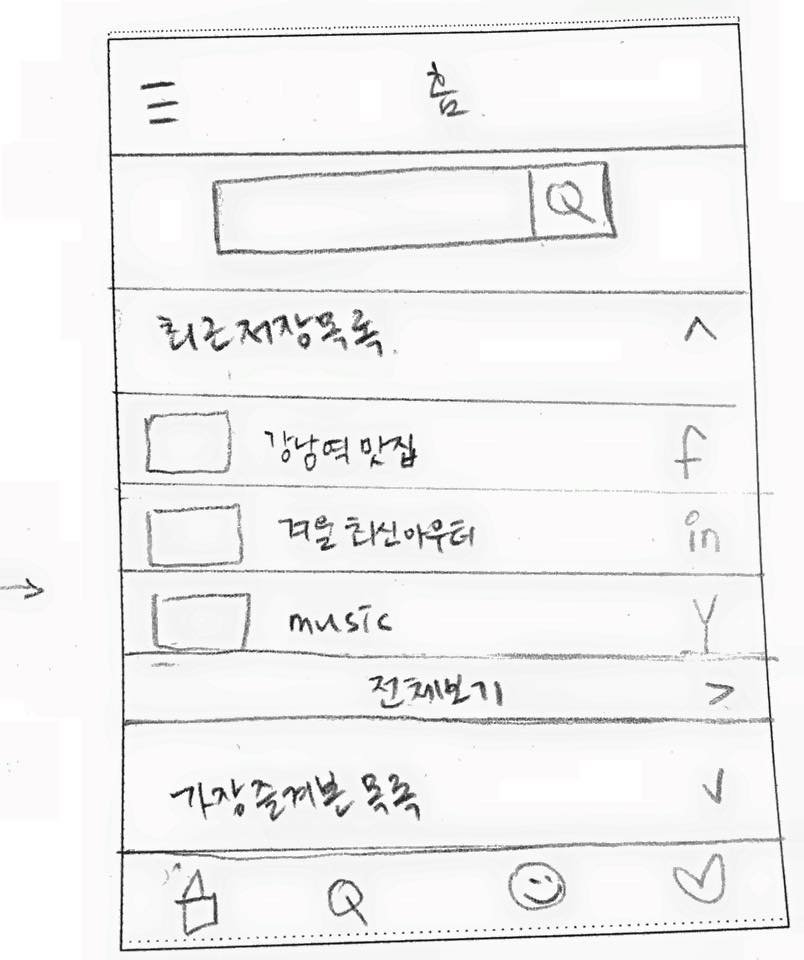 홈
최근저장목록
강남역 맛집 f
겨울 최신아우터 in
music Y
전체보기 >
가장즐겨본 목록